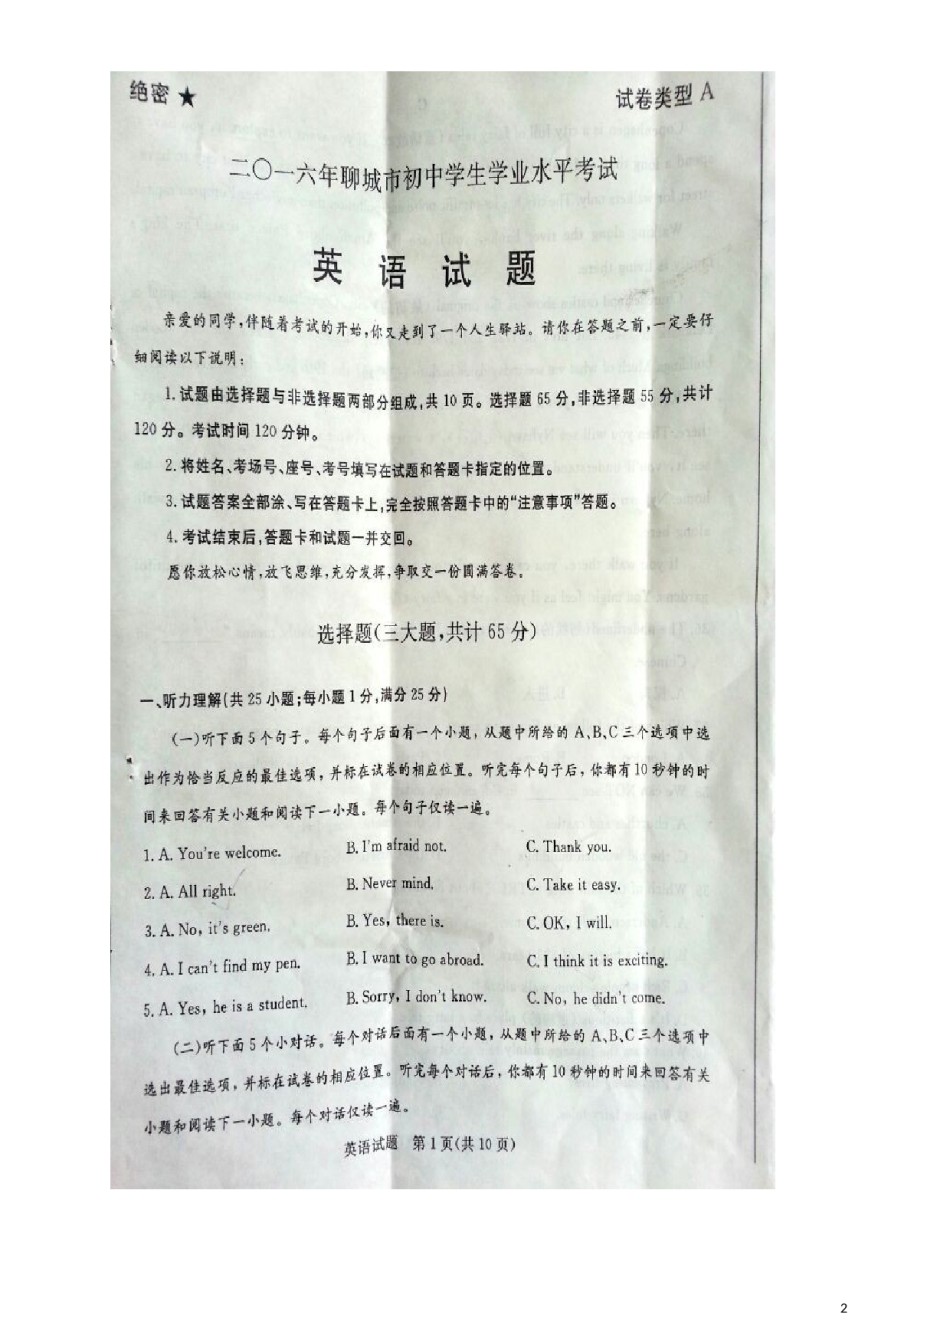 绝密★
试卷类型 A
二〇一六年聊城市初中学生学业水平考试
英 语 试 题
亲爱的同学,伴随着考试的开始,你又走到了一个人生驿站。请你在答题之前,一定要仔
细阅读以下说明:
1.试题由选择题与非选择题两部分组成,共 10 页。选择题 65 分,非选择题 55 分,共计
120 分。考试时间 120 分钟。
2.将姓名、考场号、座号、考号填写在试题和答题卡指定的位置。
3.试题答案全部涂、写在答题卡上,完全按照答题卡中的“注意事项”答题。
4.考试结束后,答题卡和试题一并交回。
愿你放松心情,放飞思维,充分发挥,争取交一份圆满答卷。
选择题(三大题,共计 65 分)
一、听力理解(共 25 小题;每小题 1 分,满分 25 分)
(一)听下面 5 个句子。每个句子后面有一个小题,从题中所给的 A、B、C 三个选项中选
出作为恰当反应的最佳选项,并标在试卷的相应位置。听完每个句子后,你都有 10 秒钟的时
间来回答有关小题和阅读下一小题。每个句子仅读一遍。
1. A. You're welcome. B. I'm afraid not. C. Thank you.
2. A. All right. B. Never mind. C. Take it easy.
3. A. No, it's green. B. Yes, there is. C. OK, I will.
4. A. I can't find my pen. B. I want to go abroad. C. I think it is exciting.
5. A. Yes, he is a student. B. Sorry, I don't know. C. No, he didn't come.
(二)听下面 5 个小对话。每个对话后面有一个小题,从题中所给的 A、B、C 三个选项中
选出最佳选项,并标在试卷的相应位置。听完每个对话后,你都有 10 秒钟的时间来回答有关
小题和阅读下一小题。每个对话仅读一遍。
英语试题 第 1 页(共 10 页)
2